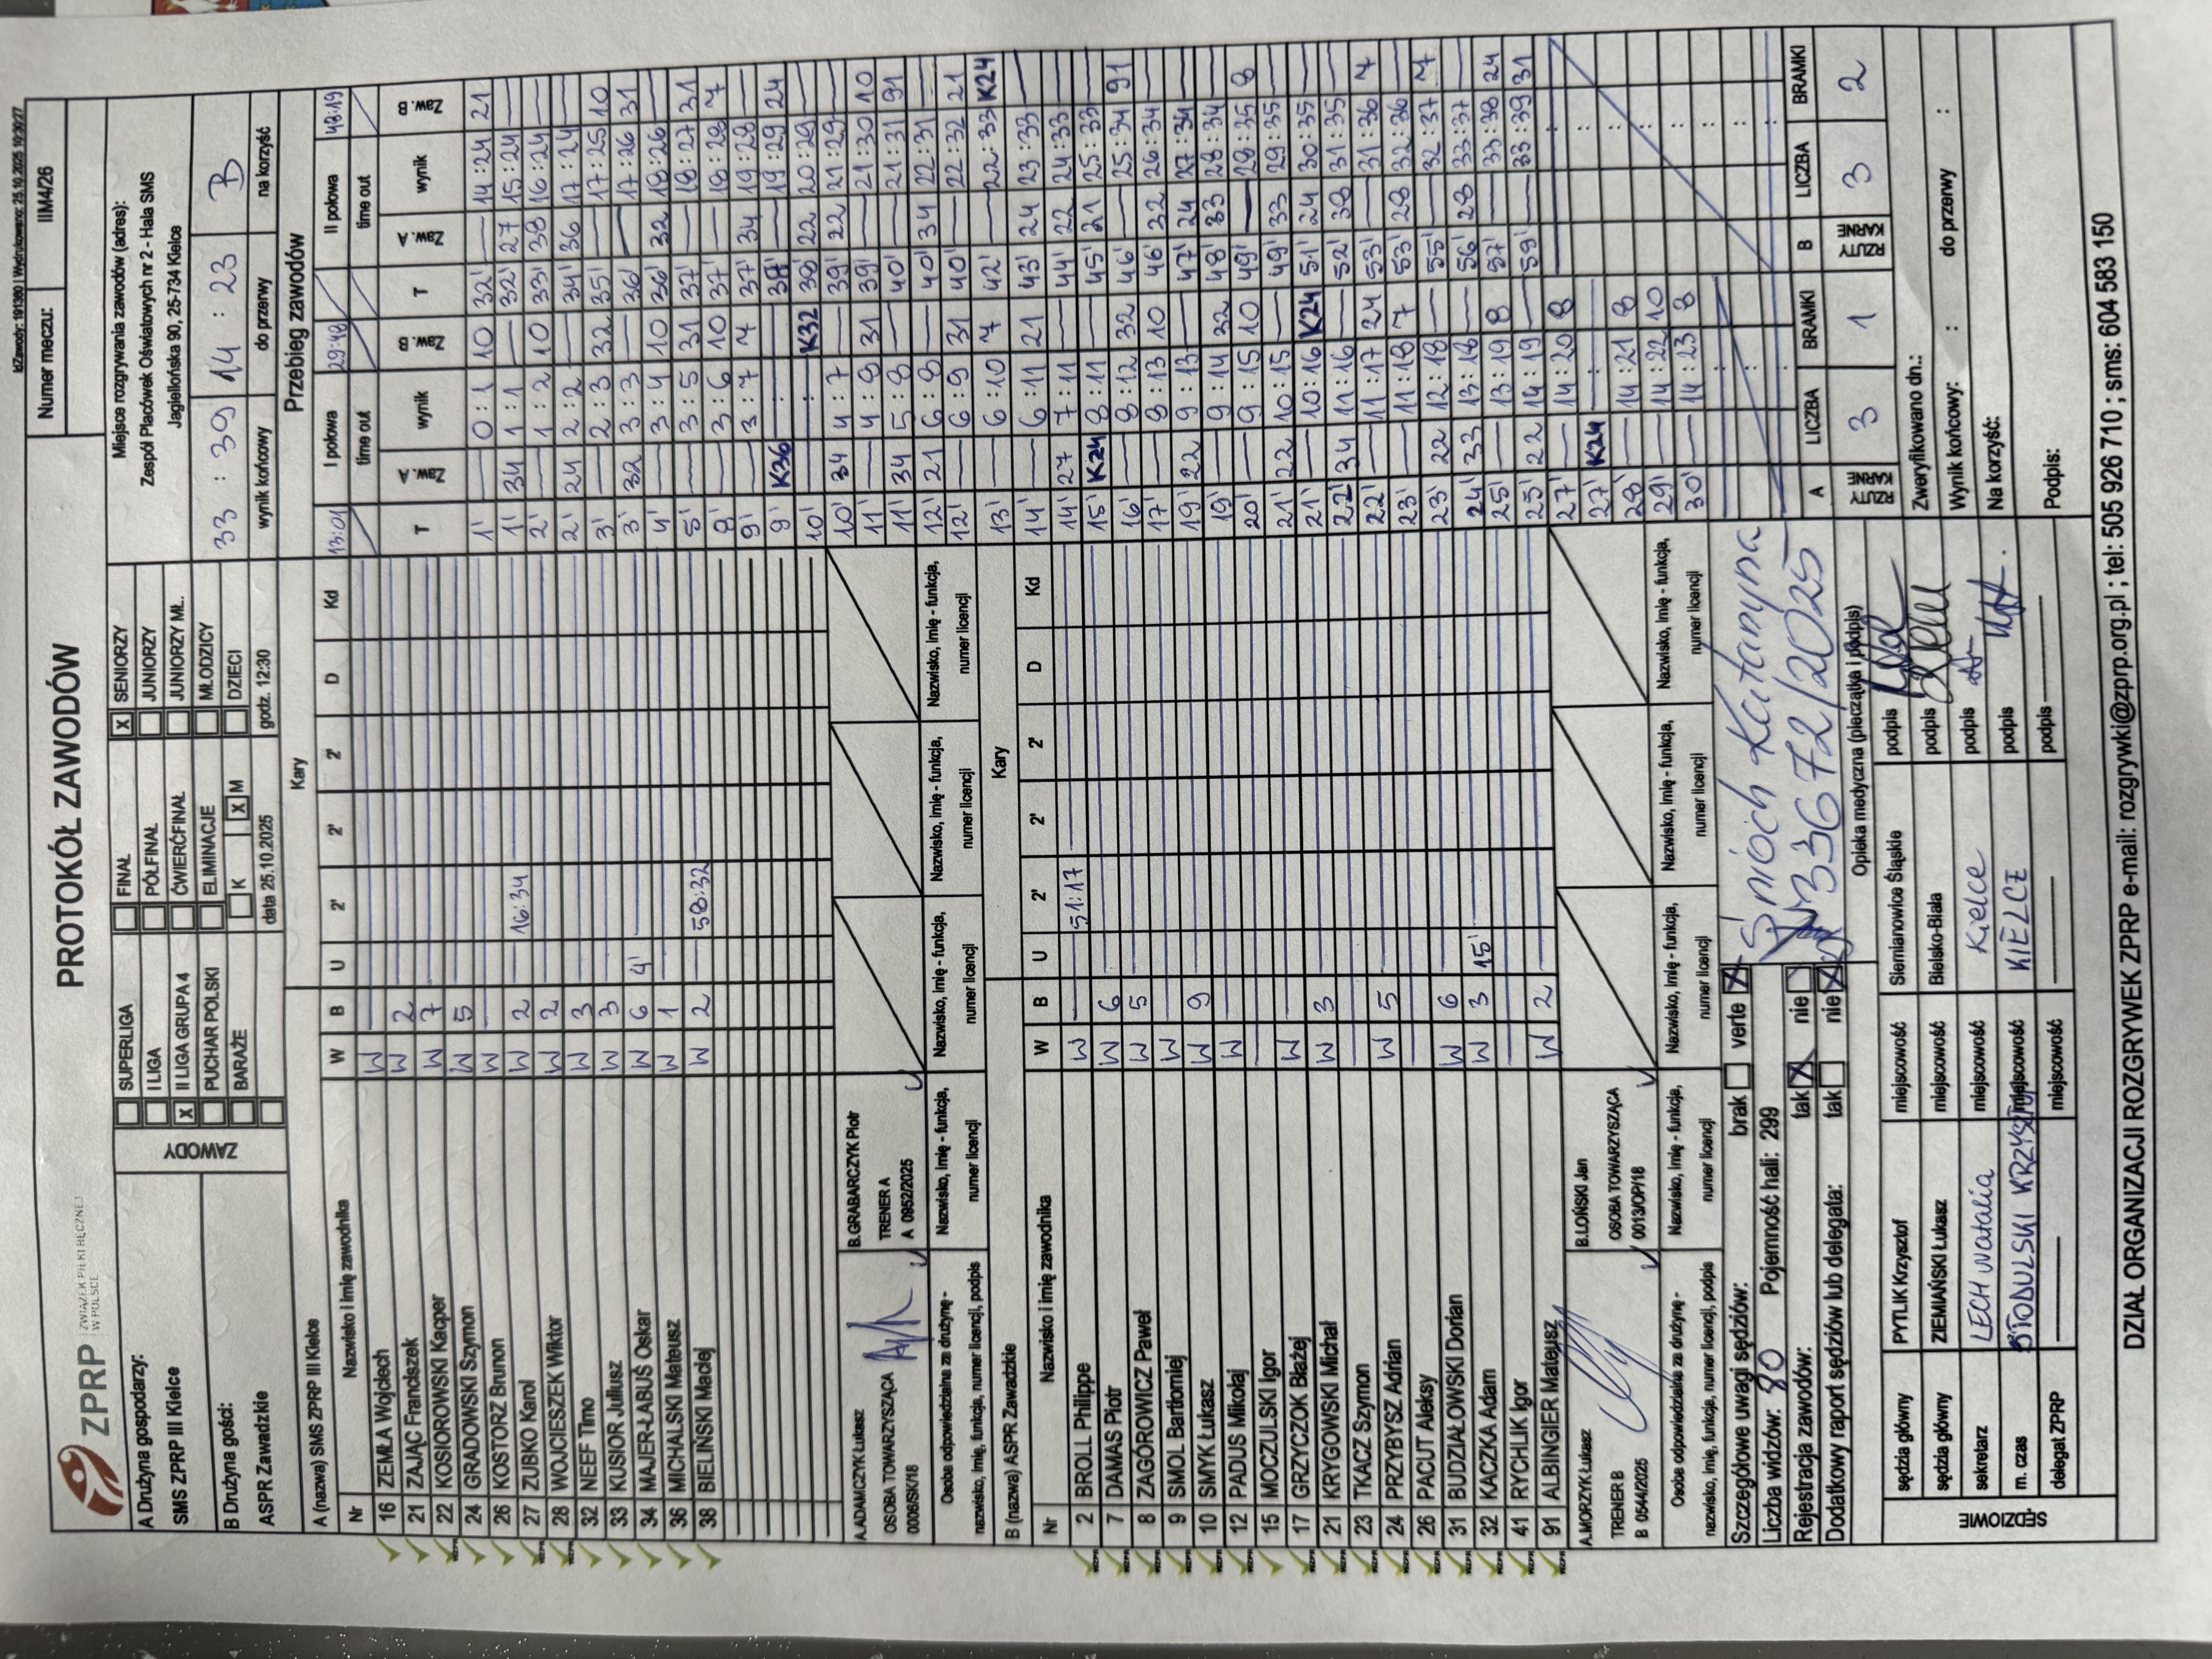 IdZawody: 191380 | Wydrukowano: 25.10.2025 10:30:27
ZPRP | ZWIĄZEK PIŁKI RĘCZNEJ W POLSCE
PROTOKÓŁ ZAWODÓW
Numer meczu: IIM4/26
A Drużyna gospodarzy:
SMS ZPRP III Kielce
B Drużyna gości:
ASPR Zawadzkie
ZAWODY
SUPERLIGA
I LIGA
X II LIGA GRUPA 4
PUCHAR POLSKI
BARAŻE
FINAŁ
PÓŁFINAŁ
ĆWIERĆFINAŁ
ELIMINACJE
K X M
X SENIORZY
JUNIORZY
JUNIORZY MŁ.
MŁODZICY
DZIECI
data 25.10.2025 godz. 12:30
Miejsce rozgrywania zawodów (adres):
Zespół Placówek Oświatowych nr 2 - Hala SMS
Jagiellońska 90, 25-734 Kielce
33 : 39 14 : 23 B
wynik końcowy do przerwy na korzyść
A (nazwa) SMS ZPRP III Kielce
Kary
Nr Nazwisko i imię zawodnika W B U 2' 2' 2' D Kd
16 ZEMŁA Wojciech W
21 ZAJĄC Franciszek W 2
22 KOSIOROWSKI Kacper W 7
24 GRADOWSKI Szymon W 5
26 KOSTORZ Brunon W
27 ZUBKO Karol W 2 16:34
28 WOJCIESZEK Wiktor W 2
32 NEEF Timo W 3
33 KUSIOR Juliusz W 3
34 MAJER-ŁABUŚ Oskar W 6 4'
36 MICHALSKI Mateusz W 1
38 BIELIŃSKI Maciej W 2 58:32
A.ADAMCZYK Łukasz
OSOBA TOWARZYSZĄCA
0006/SK/18
B.GRABARCZYK Piotr
TRENER A
A 0952/2025
Osoba odpowiedzialna za drużynę -
nazwisko, imię, funkcja, numer licencji, podpis
Nazwisko, imię - funkcja,
numer licencji
Nazwisko, imię - funkcja,
numer licencji
Nazwisko, imię - funkcja,
numer licencji
Nazwisko, imię - funkcja,
numer licencji
B (nazwa) ASPR Zawadzkie
Kary
Nr Nazwisko i imię zawodnika W B U 2' 2' 2' D Kd
2 BROLL Philippe W 51:17
7 DAMAS Piotr W 6
8 ZAGÓROWICZ Paweł W 5
9 SMOL Bartłomiej W
10 SMYK Łukasz W 9
12 PADUS Mikołaj W
15 MOCZULSKI Igor
17 GRZYCZOK Błażej W
21 KRYGOWSKI Michał W 3
23 TKACZ Szymon
24 PRZYBYSZ Adrian W 5
26 PACUT Aleksy
31 BUDZIAŁOWSKI Dorian W 6
32 KACZKA Adam W 3 15'
41 RYCHLIK Igor
91 ALBINGIER Mateusz W 2
A.MORZYK Łukasz
TRENER B
B 0544/2025
B.ŁOŃSKI Jan
OSOBA TOWARZYSZĄCA
0013/OP/18
Osoba odpowiedzialna za drużynę -
nazwisko, imię, funkcja, numer licencji, podpis
Nazwisko, imię - funkcja,
numer licencji
Nazwisko, imię - funkcja,
numer licencji
Nazwisko, imię - funkcja,
numer licencji
Nazwisko, imię - funkcja,
numer licencji
Przebieg zawodów
13:01 I połowa 29:48 II połowa 48:19
time out time out
T Zaw. A wynik Zaw. B T Zaw. A wynik Zaw. B
1' — 0:1 10 32' — 14:24 21
1' 34 1:1 — 32' 27 15:24 —
2' — 1:2 10 33' 38 16:24 —
2' 24 2:2 — 34' 36 17:24 —
3' — 2:3 32 35' — 17:25 10
3' 32 3:3 — 36' — 17:26 31
4' — 3:4 10 36' 32 18:26 —
5' — 3:5 31 37' — 18:27 31
8' — 3:6 10 37' — 18:28 7
9' — 3:7 7 37' 34 19:28 —
9' K36 : — 38' — 19:29 24
10' — : K32 38' 22 20:29 —
10' 34 4:7 — 39' 22 21:29 —
11' — 4:8 31 39' — 21:30 10
11' 34 5:8 — 40' — 21:31 91
12' 21 6:8 — 40' 34 22:31 —
12' — 6:9 31 40' — 22:32 21
13' — 6:10 7 42' — 22:33 K24
14' — 6:11 21 43' 24 23:33 —
14' 27 7:11 — 44' 22 24:33 —
15' K24 8:11 — 45' 21 25:33 —
16' — 8:12 32 46' — 25:34 91
17' — 8:13 10 46' 32 26:34 —
19' 22 9:13 — 47' 24 27:34 —
19' — 9:14 32 48' 33 28:34 —
20' — 9:15 10 49' — 28:35 8
21' 22 10:15 — 49' 33 29:35 —
21' — 10:16 K24 51' 24 30:35 —
22' 34 11:16 — 52' 38 31:35 —
22' — 11:17 24 53' — 31:36 7
23' — 11:18 7 53' 28 32:36 —
23' 22 12:18 — 55' — 32:37 7
24' 33 13:18 — 56' 28 33:37 —
25' — 13:19 8 57' — 33:38 24
25' 22 14:19 — 59' — 33:39 31
27' — 14:20 8
27' K24 : —
28' — 14:21 8
29' — 14:22 10
30' — 14:23 8
A LICZBA BRAMKI B LICZBA BRAMKI
RZUTY KARNE 3 1 RZUTY KARNE 3 2
Szczegółowe uwagi sędziów: brak verte X
Liczba widzów: 80 Pojemność hali: 299
Rejestracja zawodów: tak X nie
Dodatkowy raport sędziów lub delegata: tak nie X
Śnioch Katarzyna
33672/2025
Opieka medyczna (pieczątka i podpis)
SĘDZIOWIE
sędzia główny PYTLIK Krzysztof miejscowość Siemianowice Śląskie podpis
sędzia główny ZIEMIAŃSKI Łukasz miejscowość Bielsko-Biała podpis
sekretarz LECH Natalia miejscowość Kielce podpis
m. czas STODULSKI KRZYSZTOF miejscowość KIELCE podpis
delegat ZPRP miejscowość podpis
Zweryfikowano dn.:
Wynik końcowy: : do przerwy :
Na korzyść:
Podpis:
DZIAŁ ORGANIZACJI ROZGRYWEK ZPRP e-mail: rozgrywki@zprp.org.pl ; tel: 505 926 710 ; sms: 604 583 150